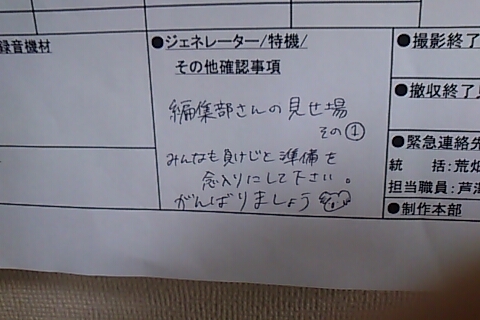 録音機材
●ジェネレーター/特機/
その他確認事項
編集部さんの見せ場
その①
みんなも負けじと準備を
念入りにして下さい。
がんばりましょう
●撮影終了
●撤収終了
●緊急連絡先
統　括:荒畑
担当職員:芦澤
●制作本部